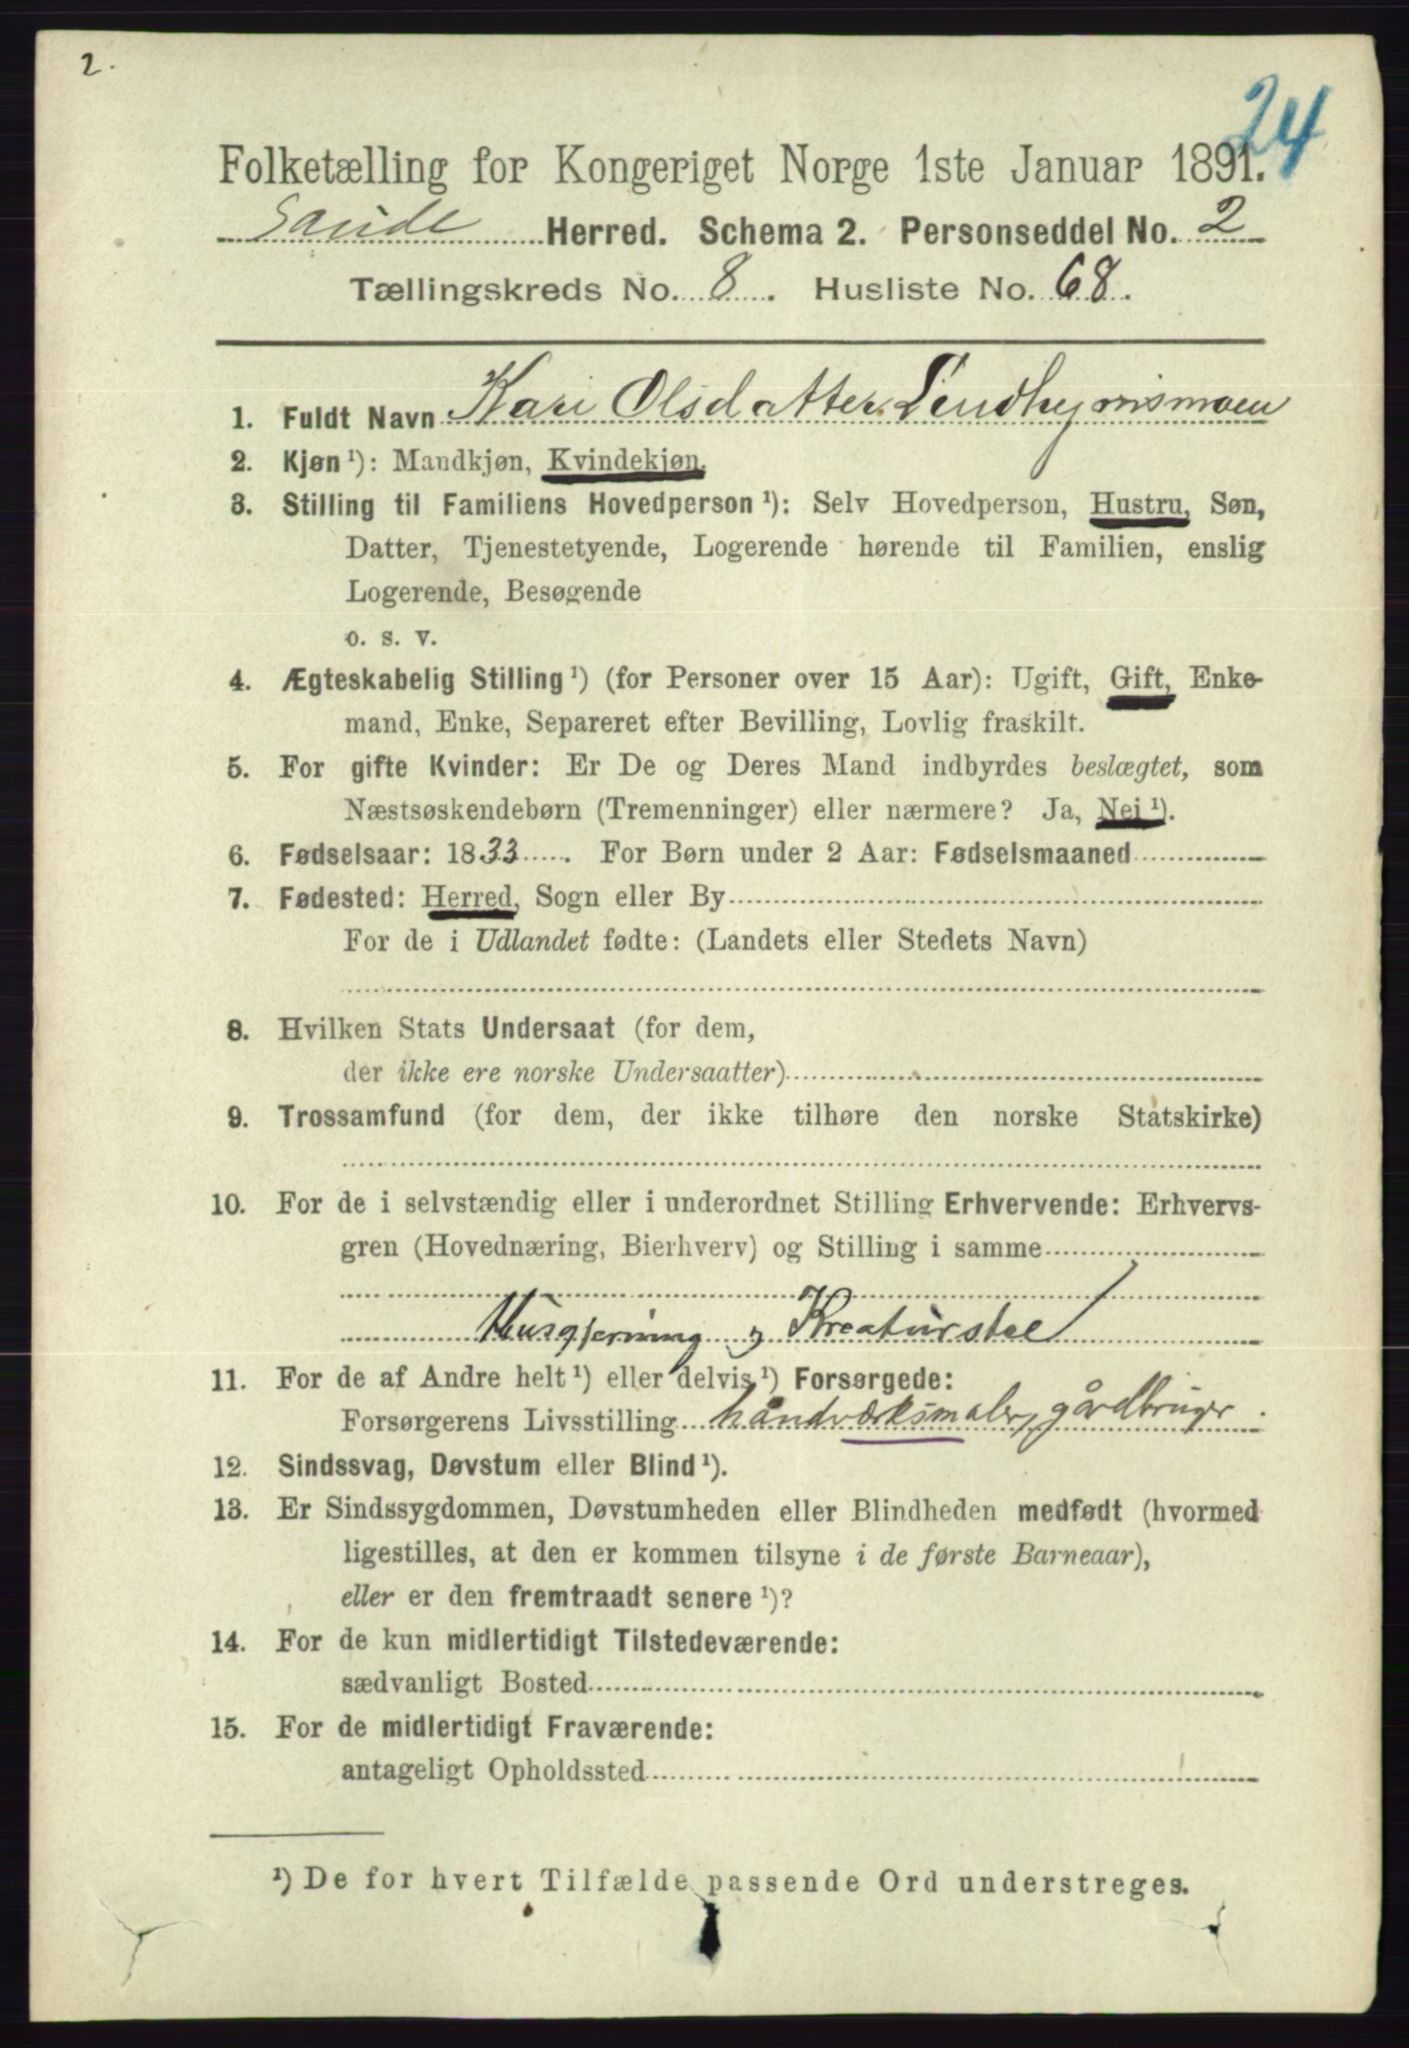 2.
24
Folketælling for Kongeriget Norge 1ste Januar 1891.
Saude Herred. Schema 2. Personseddel No. 2
Tællingskreds No. 8. Husliste No. 68.
1. Fuldt Navn Kari Olsdatter Lindhjemsmoen
2. Kjøn¹): Mandkjøn, Kvindekjøn.
3. Stilling til Familiens Hovedperson¹): Selv Hovedperson, Hustru, Søn,
Datter, Tjenestetyende, Logerende hørende til Familien, enslig
Logerende, Besøgende
o. s. v.
4. Ægteskabelig Stilling¹) (for Personer over 15 Aar): Ugift, Gift, Enke-
mand, Enke, Separeret efter Bevilling, Lovlig fraskilt.
5. For gifte Kvinder: Er De og Deres Mand indbyrdes beslægtet, som
Næstsøskendebørn (Tremenninger) eller nærmere? Ja, Nei¹).
6. Fødselsaar: 1833. For Børn under 2 Aar: Fødselsmaaned
7. Fødested: Herred, Sogn eller By
For de i Udlandet fødte: (Landets eller Stedets Navn)
8. Hvilken Stats Undersaat (for dem,
der ikke ere norske Undersaatter)
9. Trossamfund (for dem, der ikke tilhøre den norske Statskirke)
10. For de i selvstændig eller i underordnet Stilling Erhvervende: Erhvervs-
gren (Hovednæring, Bierhverv) og Stilling i samme
Husgjerning og Kreaturstel
11. For de af Andre helt¹) eller delvis¹) Forsørgede:
Forsørgerens Livsstilling håndværksmaler, gårdbruger.
12. Sindssvag, Døvstum eller Blind¹).
13. Er Sindssygdommen, Døvstumheden eller Blindheden medfødt (hvormed
ligestilles, at den er kommen tilsyne i de første Barneaar),
eller er den fremtraadt senere¹)?
14. For de kun midlertidigt Tilstedeværende:
sædvanligt Bosted
15. For de midlertidigt Fraværende:
antageligt Opholdssted
¹) De for hvert Tilfælde passende Ord understreges.